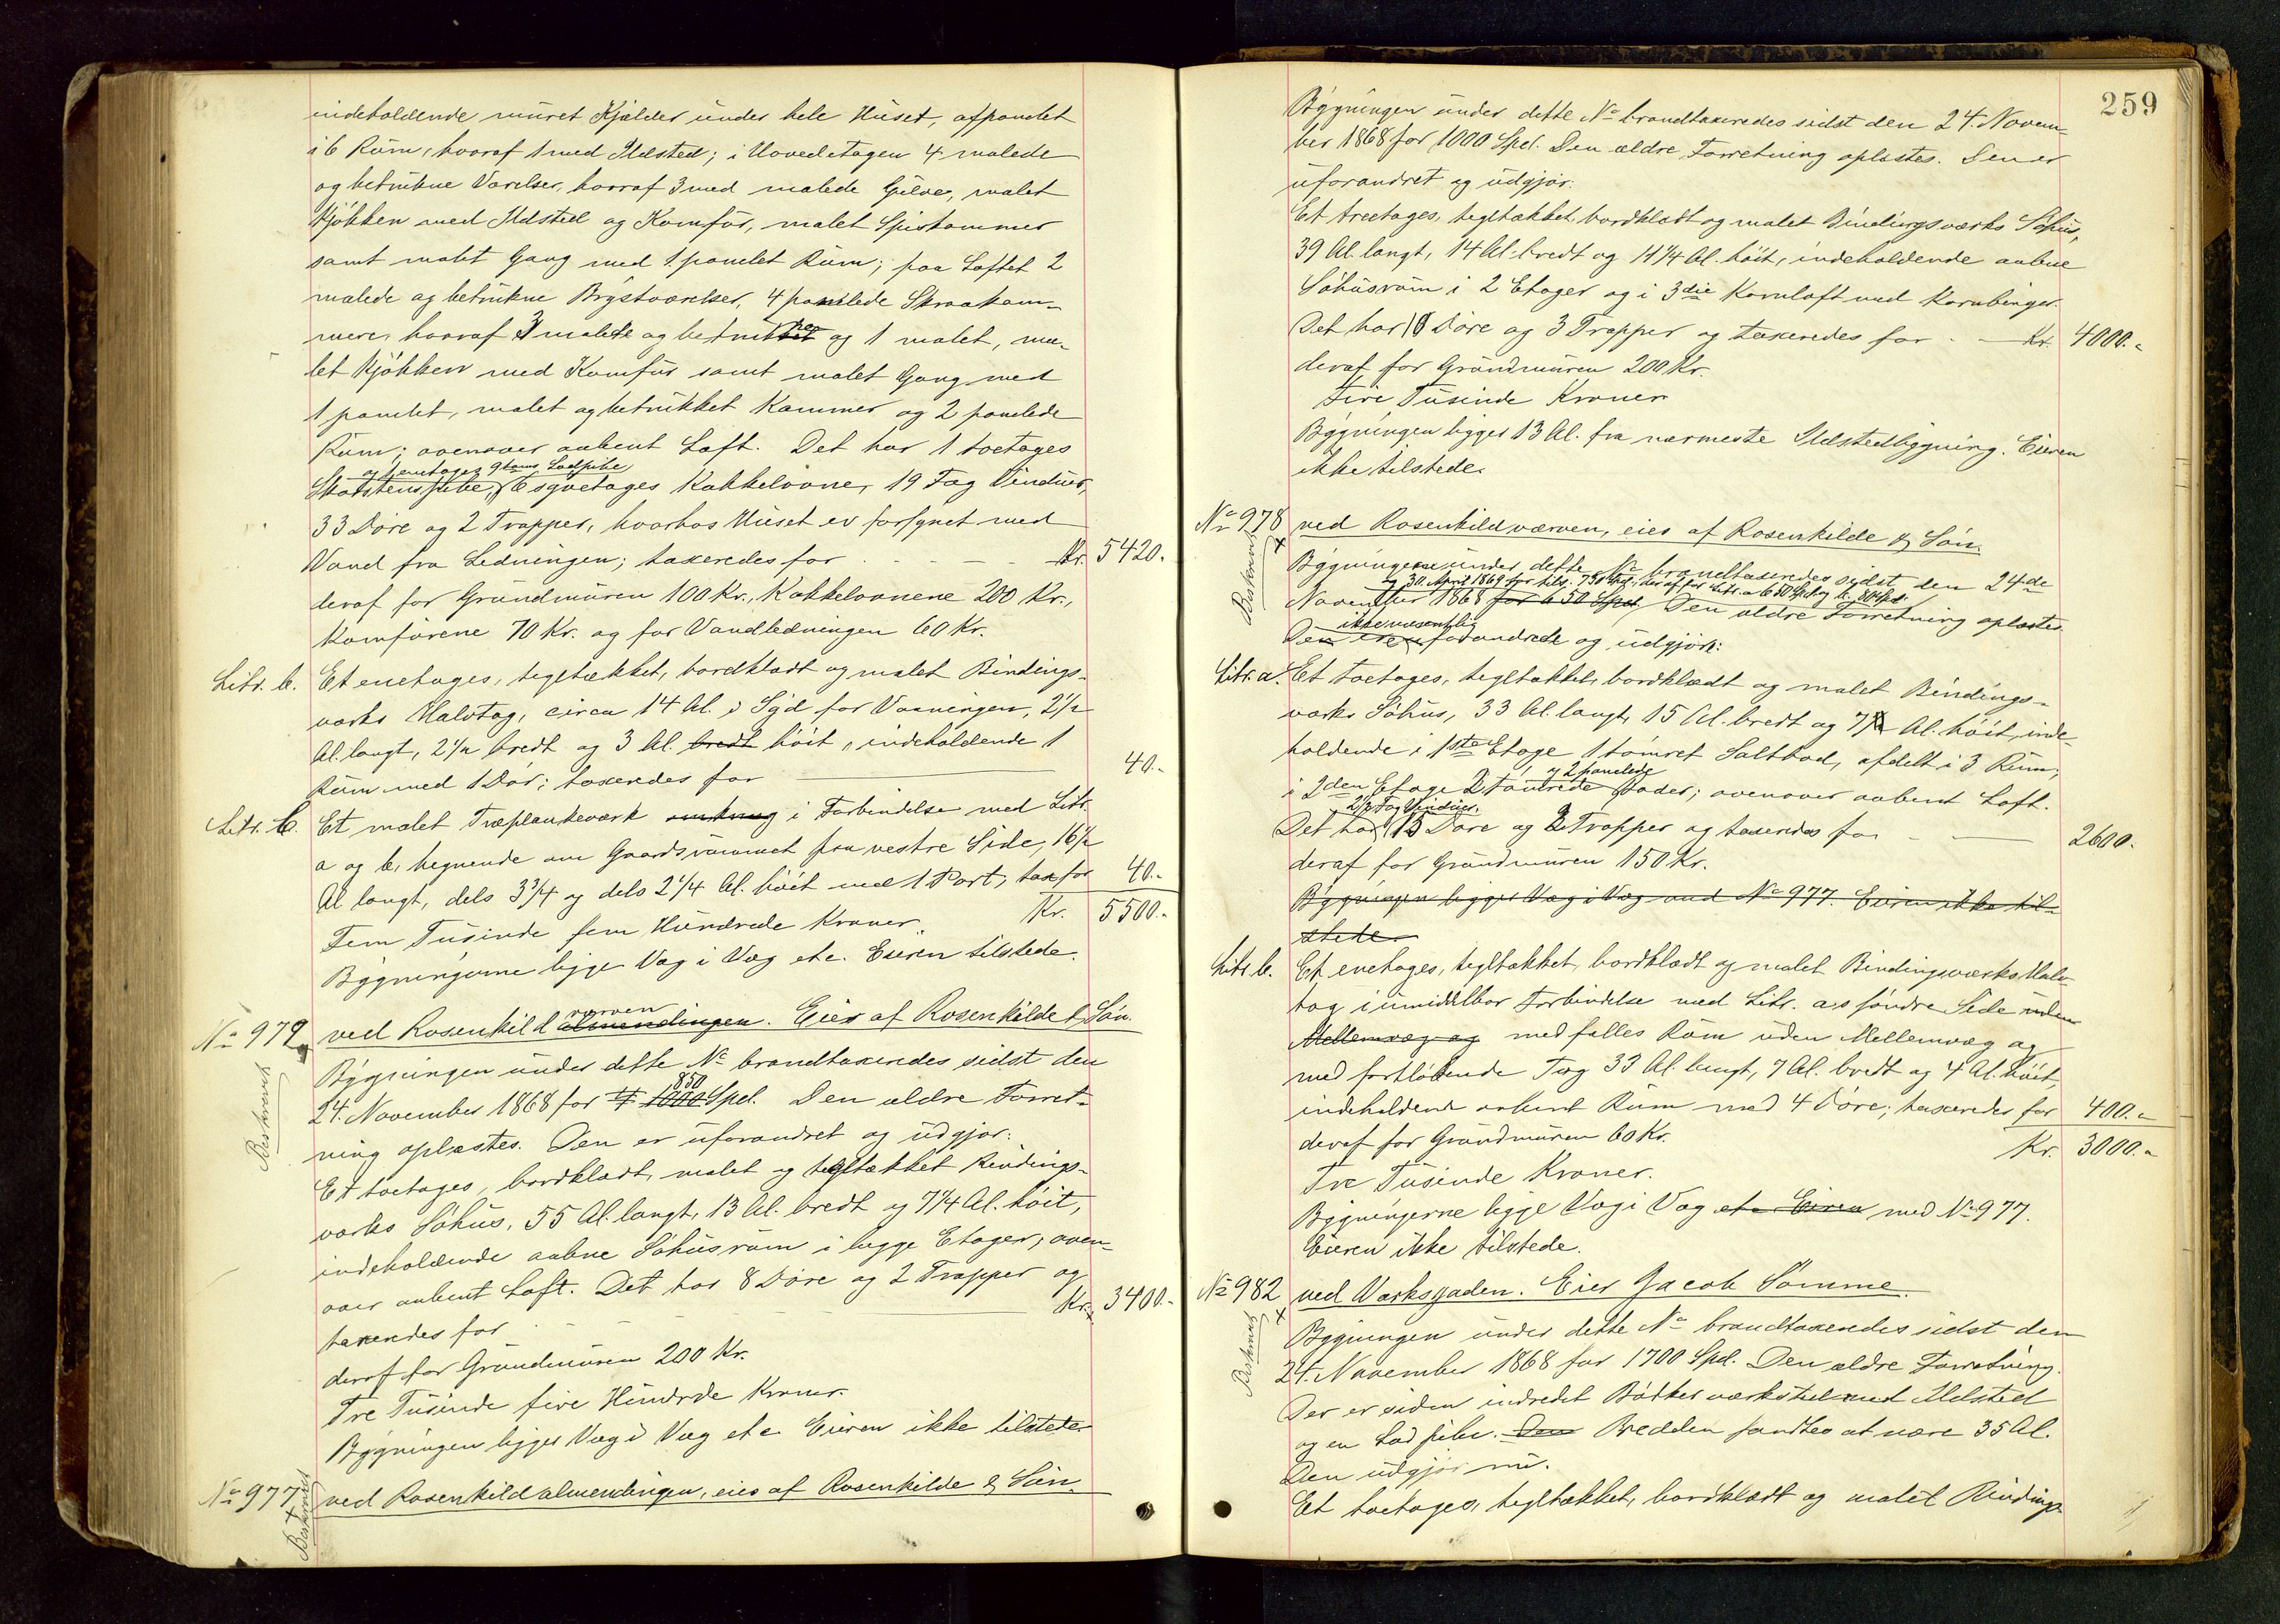 indeholdende muret Kjælder under hele Huset, afpanelet
i 6 Rum, hvoraf 1 med Ildsted; i Hovedetagen 4 malede
og betrukne Værelser, hvoraf 3 med malede Gulve, malet
Kjøkken med Ildsted og Komfur, malet Spiskammer
samt malet Gang med 1 panelet Rum; paa Loftet 2
malede og betrukne Brystværelser, 4 panelede Skraakam-
mere, hvoraf 3 malede og betrukne og 1 malet, ma-
let Kjøkken med Komfur samt malet Gang med
1 panelet, malet og betrukket Kammer og 2 panelede
Rum; ovenover aabent Loft. Det har 1 toetages
og 1 enetages Ladpibe
Skorstenspibe, 6 2 etages Kakkelovne, 19 Fag Vinduer,
33 Døre og 2 Trapper, hvorhos Huset er forsynet med
Vand fra Ledningen; taxeredes for Kr. 5420.
deraf for Grundmuren 100 Kr., Kakkelovnene 200 Kr.,
Komfurene 70 Kr. og for Vandledningen 60 Kr.
Litr. b. Et enetages, tegltækket, bordklædt og malet Bindings-
værks Halvtag, circa 14 Al. i Syd for Vaaningen, 2½
Al. langt, 2½ bredt og 3 Al. bredt høit, indeholdende 1
Rum med 1 Dør; taxeredes for 40.-
Litr. C. Et malet Træplankeværk omkring i Forbindelse med Litr.
a og b, hegnende om Gaardsrummet paa vestre Side, 16½
Al langt, dels 3¾ og dels 2¼ Al. høit med 1 Port, tax for 40.-
Fem Tusinde fem Hundrede Kroner. Kr. 5500.-
Bygningerne ligge Væg i Væg etc. Eieren tilstede.
værven
No 979 ved Rosenkildalmendingen. Eier af Rosenkilde & Søn.
Beskrevet
Bygningen under dette No brandtaxeredes sidst den
850
24. November 1868 for 1000 Spd. Den ældre Forret-
ning oplæstes. Den er uforandret og udgjør:
Et toetages, bordklædt, malet og tegltækket Bindings-
værks Søhus, 55 Al. langt, 13 Al. bredt og 7¼ Al. høit,
indeholdende aabne Søhusrum i begge Etager, oven-
over aabent Loft. Det har 8 Døre og 2 Trapper og
taxeredes for Kr. 3400.-
deraf for Grundmuren 200 Kr.
Tre Tusinde fire Hundrede Kroner.
Bygningen ligger Væg i Væg etc Eieren ikke tilstede.
No 977 ved Rosenkildalmendingen, eies af Rosenkilde & Søn.
Beskrevet
259
Bygningen under dette No brandtaxeredes sidst den 24. Novem-
ber 1868 for 1000 Spd. Den ældre Forretning oplæstes. Den er
uforandret og udgjør:
Et treetages, tegltækket, bordklædt og malet Bindingsværks Søhus,
39 Al. langt, 14 Al. bredt og 11¼ Al. høit, indeholdende aabne
Søhusrum i 2 Etager og i 3die Kornloft med Kornbinger.
Det har 10 Døre og 3 Trapper og taxeredes for Kr. 4000.-
deraf for Grundmuren 200 Kr.
Fire Tusinde Kroner
Bygningen ligger 13 Al. fra nærmeste Ildstedbygning. Eieren
ikke tilstede.
No 978 ved Rosenkildværven, eies af Rosenkilde & Søn.
Beskrevet
Bygningerne under dette No brandtaxeredes sidst den 24de
og 30. April 1869 for tils. 730 Spd., deraf for Litr. a 650 Spd og b. 80 Spd.
November 1868 for 650 Spd. Den ældre Forretning oplæstes.
ikke væsentlig
Den er uforandrede og udgjør:
Litr. a. Et toetages, tegltækket, bordklædt og malet Bindings-
værks Søhus, 33 Al. langt, 15 Al. bredt og 7½ Al. høit, inde-
holdende i 1ste Etage 1 tømret Saltbod, afdelt i 3 Rum,
og 2 panelede
i 2den Etage 2 tømrede Boder; ovenover aabent Loft.
2½ Fag Vinduer,
Det har 15 Døre og 2 Trapper og taxeredes for 2600.
deraf for Grundmuren 150 Kr.
Bygningen ligger Væg i Væg med No 977. Eieren ikke til-
stede.
Litr. b. Et enetages, tegltækket, bordklædt og malet Bindingsværks Halv-
tag i umiddelbar Forbindelse med Litr. a.s søndre Side uden
Mellemvæg og med fælles Rum uden Mellemvæg og
med fortløbende Tag 33 Al. langt, 7 Al. bredt og 4 Al. høit,
indeholdende aabent Rum med 4 Døre; taxeredes for 400.-
deraf for Grundmuren 60 Kr. Kr. 3000.-
Tre Tusinde Kroner.
Bygningerne ligge Væg i Væg etc Eieren med No 977.
Eieren ikke tilstede.
No 982 ved Værksgaden. Eier Jacob Sømme.
Beskrevet
Bygningen under dette No brandtaxeredes sidst den
24. November 1868 for 1700 Spd. Den ældre Forretning.
Der er siden indredet Bødkerværksted med Ildsted
og en Ladpibe. Den Bredden fandtes at være 35 Al.
Den udgjør nu.
Et toetages, tegltækket, bordklædt og malet Bindings-